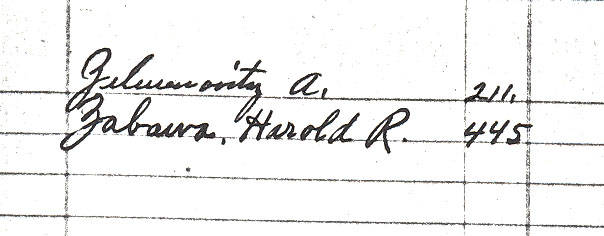 Zelmanovitz A. 211.
Zabawa, Harold R. 445